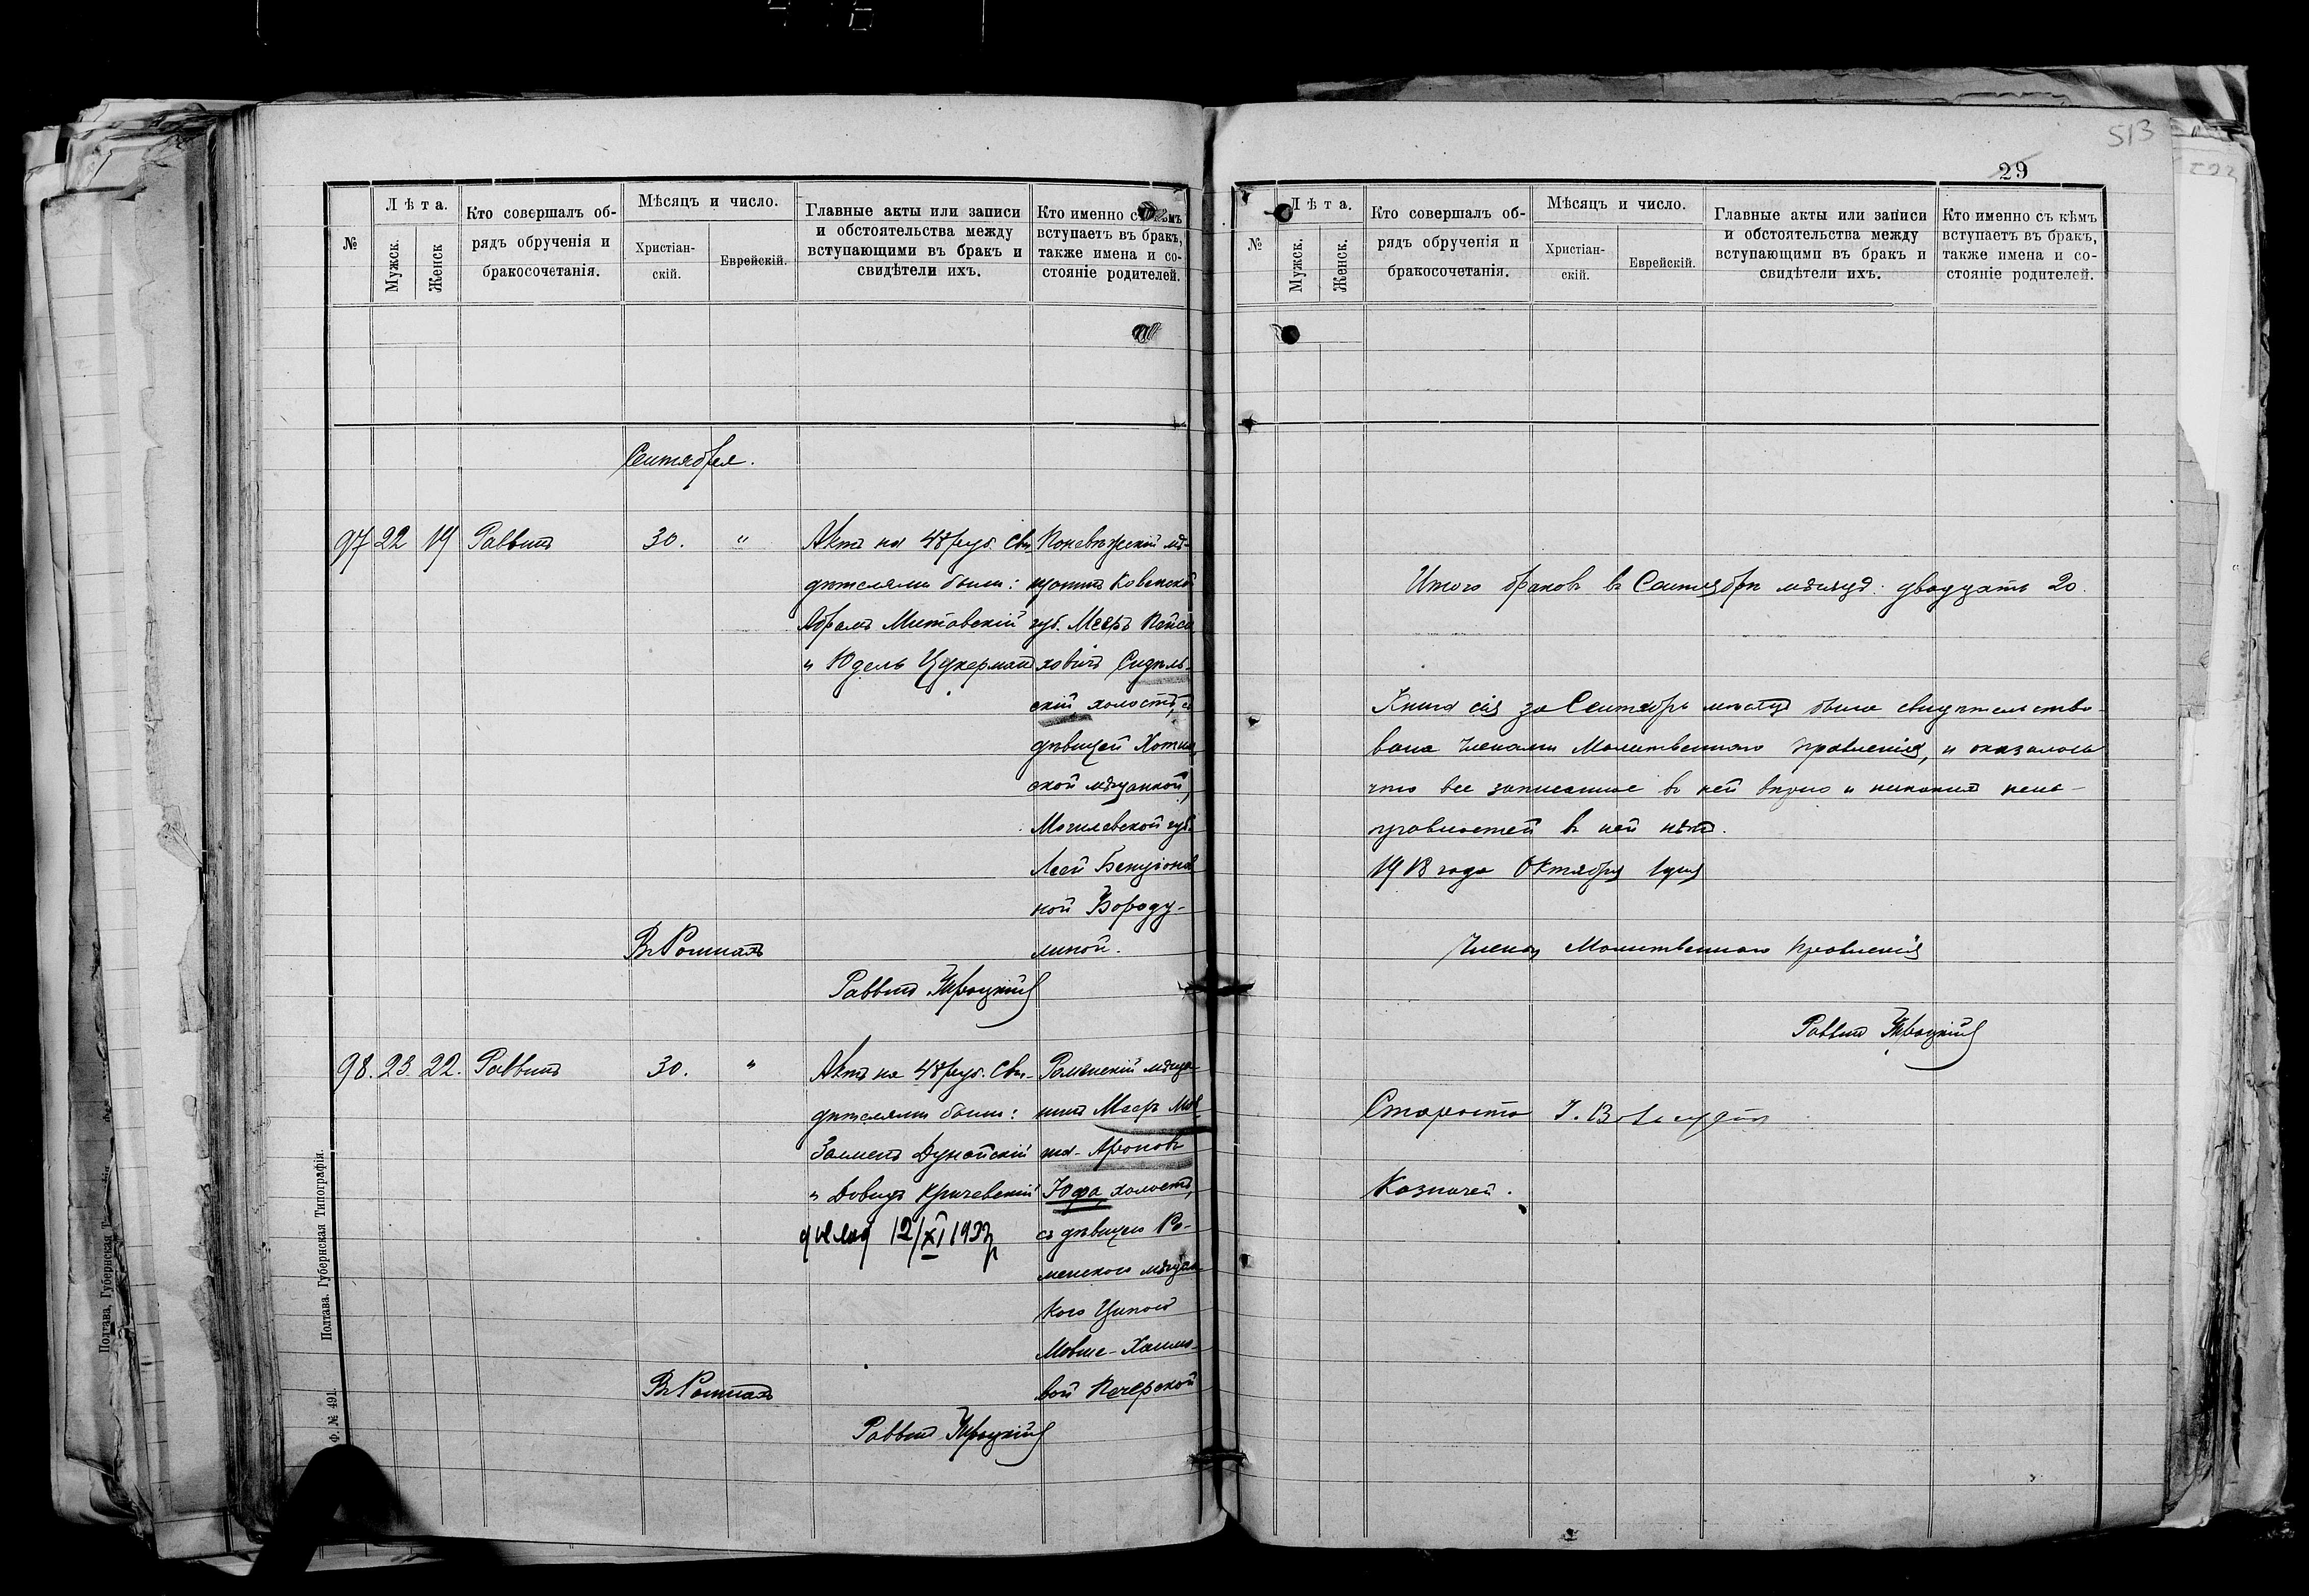 №
Лѣта.
Мужск.
Женск
Кто совершалъ об-
рядъ обрученія и
бракосочетанія.
Мѣсяцъ и число.
Христіан-
скій.
Еврейскій.
Главные акты или записи
и обстоятельства между
вступающими въ бракъ и
свидѣтели ихъ.
Кто именно съ кѣмъ
вступаетъ въ бракъ,
также имена и со-
стояніе родителей.
Сентября.
97 22 19 Раввинъ 30. "
Актъ на 48 руб. Сви
дѣтелями были:
Абрамъ Митавскій
и Юдель Цукерманъ
Поневѣжскій мѣ-
щанинъ Ковенской
губ. Мееръ Пейса
ховичъ Сидель-
скій, холостъ, съ
дѣвицей Хотим
ской мѣщанкой,
Могилевской губ.
Леей Бенціонов
ной Бороду-
линой.
Въ Ромнахъ
Раввинъ Троцкій
98. 23. 22. Раввинъ 30. "
Актъ на 48 руб. Сви-
дѣтелями были:
Залменъ Дунайскій
и Довидъ Кричевскій
12/XI 1933
Роменскій мѣща
нинъ Мееръ Мов
ша-Ароновъ
Юфа, холостъ,
съ дѣвицею Ро-
менскою мѣщан
кою Ципою
Мовше-Хаимо-
вой Печерской
Въ Ромнахъ
Раввинъ Троцкій
Полтава. Губернская Типографія.
Ф. № 491.
Полтава, Губернская
513
29
№
Лѣта.
Мужск.
Женск.
Кто совершалъ об-
рядъ обрученія и
бракосочетанія.
Мѣсяцъ и число.
Христіан-
скій.
Еврейскій.
Главные акты или записи
и обстоятельства между
вступающими въ бракъ и
свидѣтели ихъ.
Кто именно съ кѣмъ
вступаетъ въ бракъ,
также имена и со-
стояніе родителей.
Итого браковъ въ Сентябрѣ мѣсяцѣ двадцать 20.
Книга сія за Сентябрь мѣсяцъ была свидѣтельство-
вана Членами Молитвеннаго Правленія, и оказалось
что все записанное въ ней вѣрно и никакихъ неис-
правностей въ ней нѣтъ.
1918 года Октября 1 дня
Члены Молитвеннаго Правленія
Раввинъ Троцкій
Староста
Казначей.